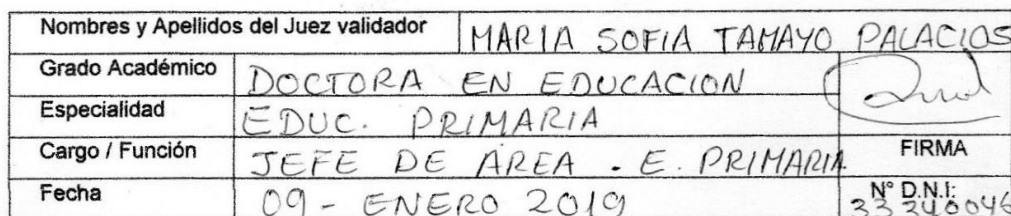 Nombres y Apellidos del Juez validador MARIA SOFIA TAMAYO PALACIOS
Grado Académico DOCTORA EN EDUCACION
Especialidad EDUC. PRIMARIA
Cargo / Función JEFE DE AREA - E. PRIMARIA FIRMA
Fecha 09 - ENERO 2019 N° D.N.I:
33240046